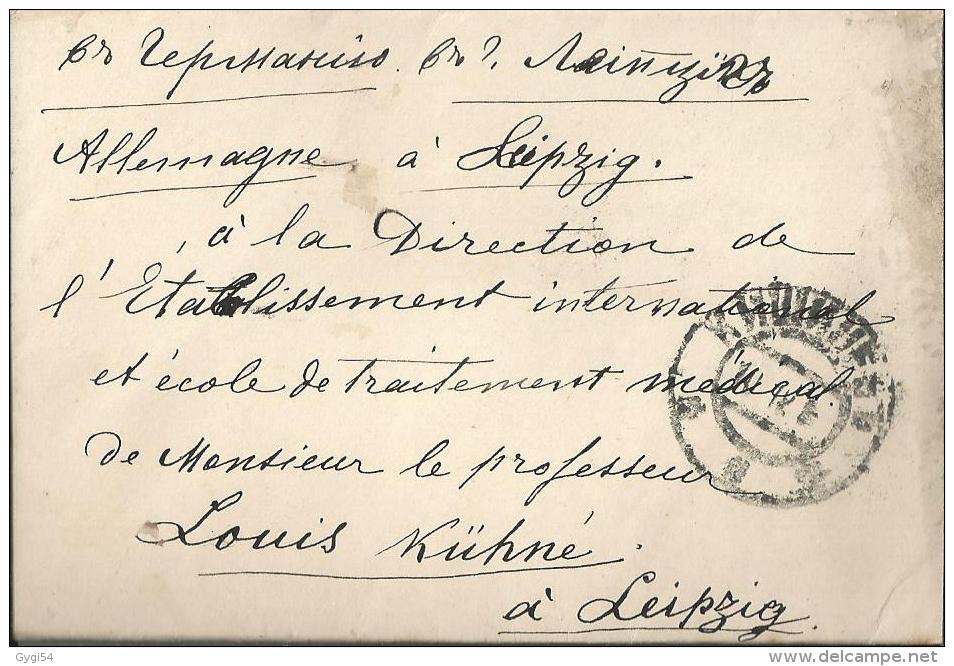 въ Германію. въ г. Лейпцигъ
Allemagne à Leipzig.
à la Direction de
l'Etablissement international
et école de traitement médical
de Monsieur le professeur
Louis Kühné.
à Leipzig.
Gygi54
www.delcampe.net